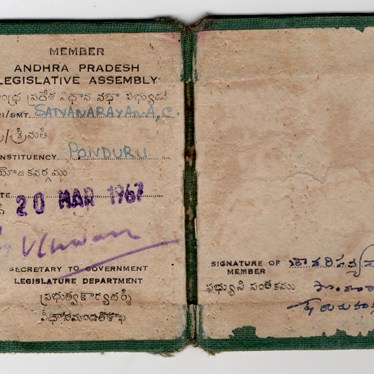 MEMBER
ANDHRA PRADESH
LEGISLATIVE ASSEMBLY
ఆంధ్ర ప్రదేశ విధాన సభా సభ్యుడు
SRI/SMT. SATYANARAYANA, C.
శ్రీ/శ్రీమతి
CONSTITUENCY PONDURU
నియోజకవర్గము
DATE
20 MAR 1967
SECRETARY TO GOVERNMENT
LEGISLATURE DEPARTMENT
ప్రభుత్వకార్యదర్శి
SIGNATURE OF
MEMBER
సభ్యుని సంతకము